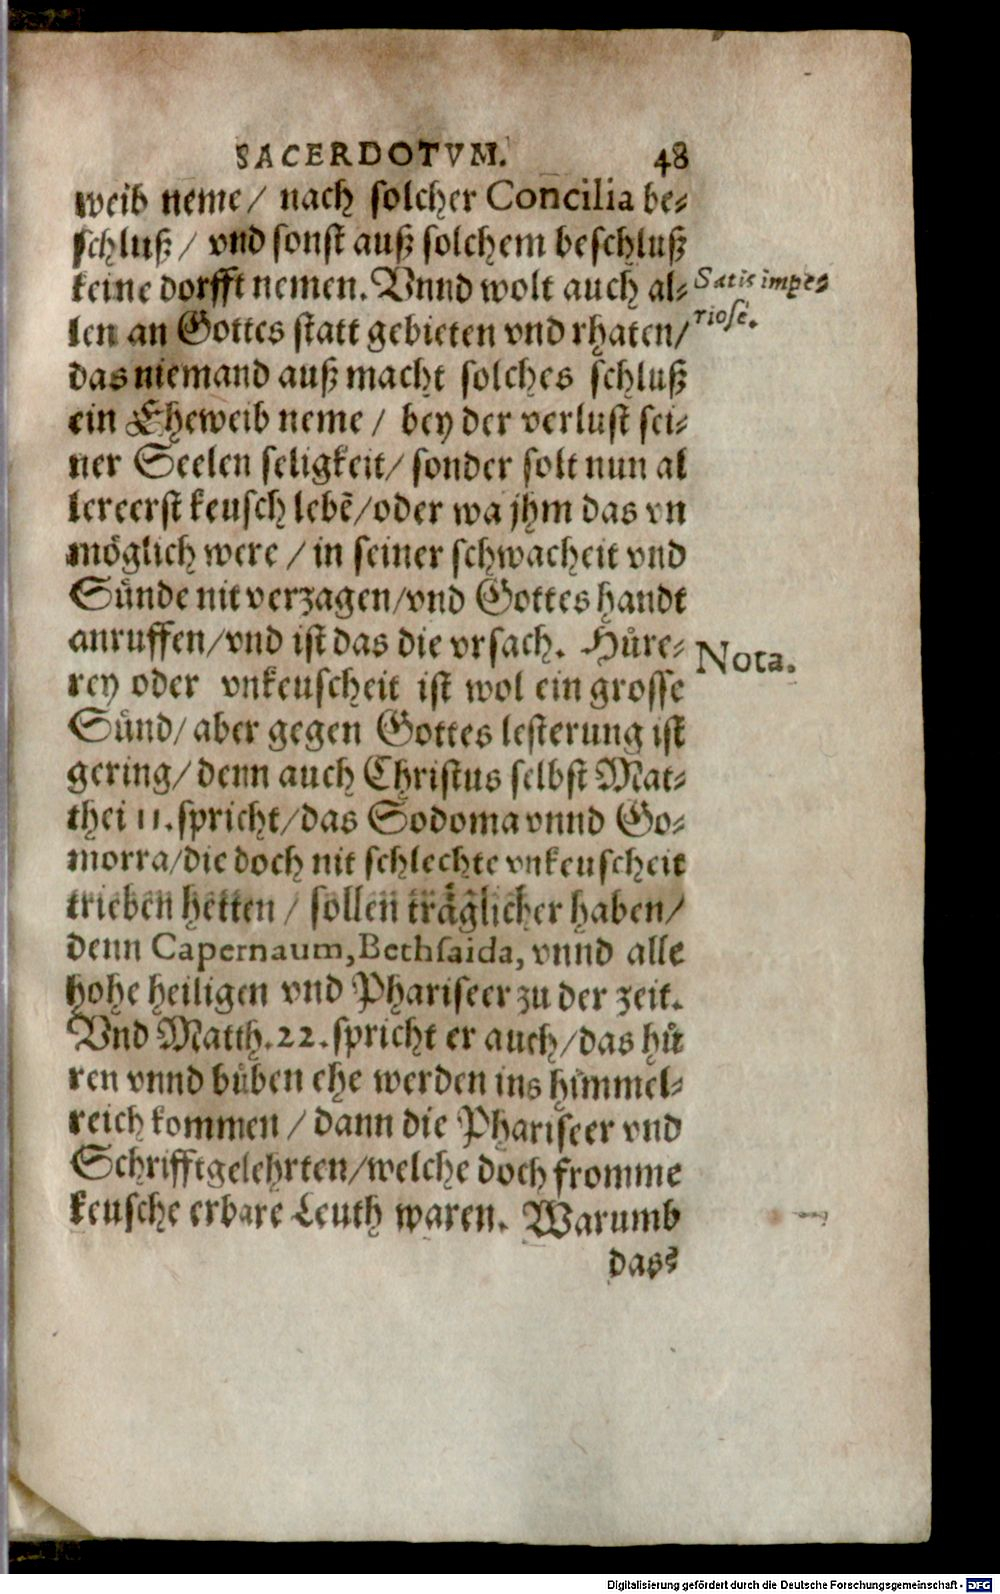 SACERDOTVM. 48
weib neme / nach solcher Concilia be⸗
schluß / vnd sonst auß solchem beschluß
keine dorfft nemen. Vnnd wolt auch al⸗
Satis impe⸗
riose.
len an Gottes statt gebieten vnd rhaten/
das niemand auß macht solches schluß
ein Eheweib neme / bey der verlust sei⸗
ner Seelen seligkeit/ sonder solt nun al
lereerst keusch lebẽ/oder wa jhm das vn
möglich were / in seiner schwacheit vnd
Sünde nit verzagen/vnd Gottes handt
anruffen/vnd ist das die vrsach. Hůre⸗
Nota.
rey oder vnkeuscheit ist wol ein grosse
Sünd/ aber gegen Gottes lesterung ist
gering/ denn auch Christus selbst Mat⸗
thei 11. spricht/das Sodoma vnnd Go⸗
morra/die doch nit schlechte vnkeuscheit
trieben hetten / sollen träglicher haben/
denn Capernaum, Bethsaida, vnnd alle
hohe heiligen vnd Phariseer zu der zeit.
Vnd Matth. 22. spricht er auch/das hů
ren vnnd bůben ehe werden ins himmel⸗
reich kommen / dann die Phariseer vnd
Schrifftgelehrten/welche doch fromme
keusche erbare Leuth waren. Warumb
das⸗
Digitalisierung gefördert durch die Deutsche Forschungsgemeinschaft - DFG